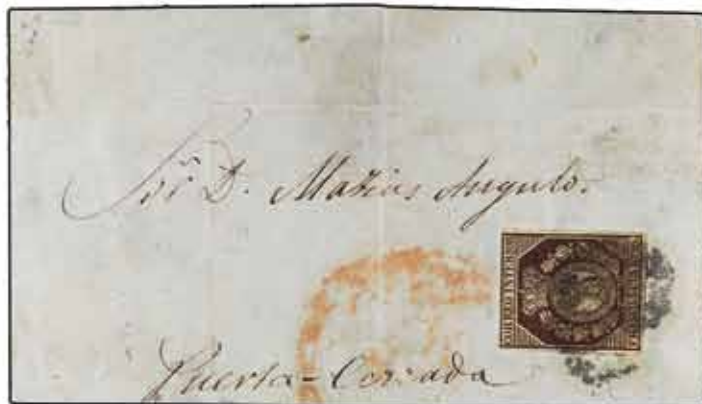 Sör D. Matias Angulo.
Puerta-Cerrada